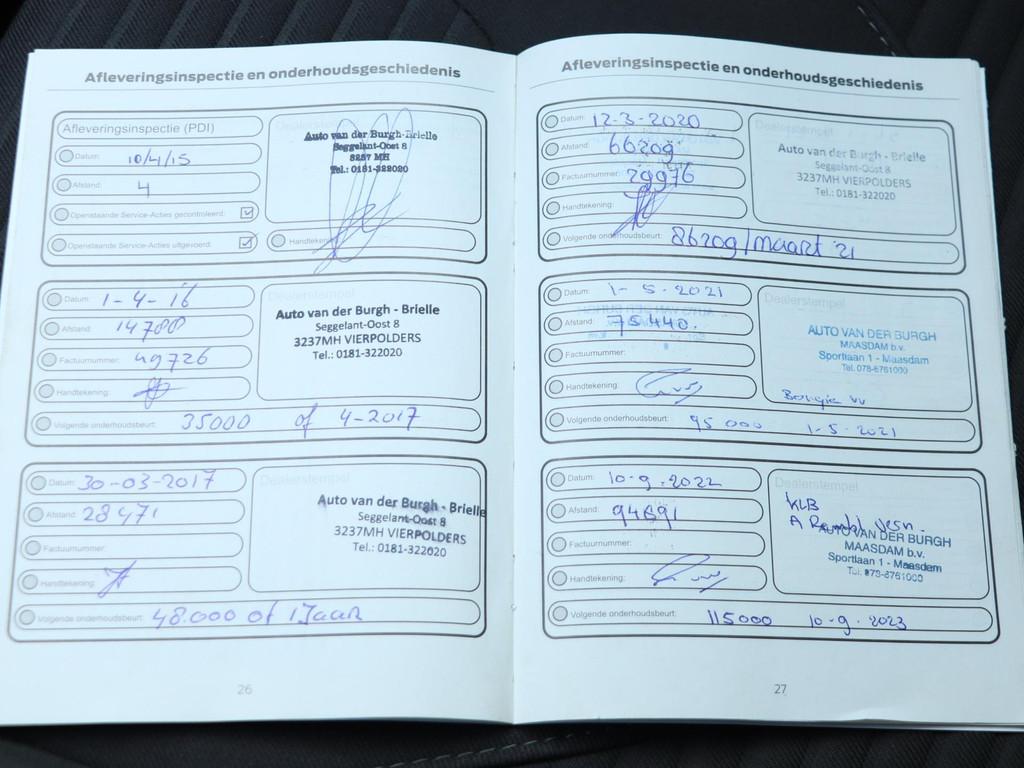 Afleveringsinspectie en onderhoudsgeschiedenis
Afleveringsinspectie (PDI)
Datum: 10/4/15
Afstand: 4
Openstaande Service-Acties gecontroleerd:
Openstaande Service-Acties uitgevoerd:
Dealerstempel
Auto van der Burgh-Brielle
Seggelant-Oost 8
3237 MH
Tel.: 0181-322020
Handtekening:
Datum: 1-4-16
Afstand: 14788
Factuurnummer: 49726
Handtekening:
Dealerstempel
Auto van der Burgh - Brielle
Seggelant-Oost 8
3237MH VIERPOLDERS
Tel.: 0181-322020
Volgende onderhoudsbeurt: 35000 of 4-2017
Datum: 30-03-2017
Afstand: 28471
Factuurnummer:
Handtekening:
Dealerstempel
Auto van der Burgh - Brielle
Seggelant-Oost 8
3237MH VIERPOLDERS
Tel.: 0181-322020
Volgende onderhoudsbeurt: 48.000 of 1 Jaar
26
Afleveringsinspectie en onderhoudsgeschiedenis
Datum: 12-3-2020
Afstand: 66209
Factuurnummer: 29976
Handtekening:
Dealerstempel
Auto van der Burgh - Brielle
Seggelant-Oost 8
3237MH VIERPOLDERS
Tel.: 0181-322020
Volgende onderhoudsbeurt: 86209/maart '21
Datum: 1-5-2021
Afstand: 75440.
Factuurnummer:
Handtekening:
Dealerstempel
AUTO VAN DER BURGH
MAASDAM b.v.
Sportlaan 1 - Maasdam
Tel. 078-6761000
Volgende onderhoudsbeurt: 95000 1-5-2021
Datum: 10-9-2022
Afstand: 94691
Factuurnummer:
Handtekening:
Dealerstempel
KLB
AUTO VAN DER BURGH
MAASDAM b.v.
Sportlaan 1 - Maasdam
Tel. 078-6761000
Volgende onderhoudsbeurt: 115000 10-9-2023
27